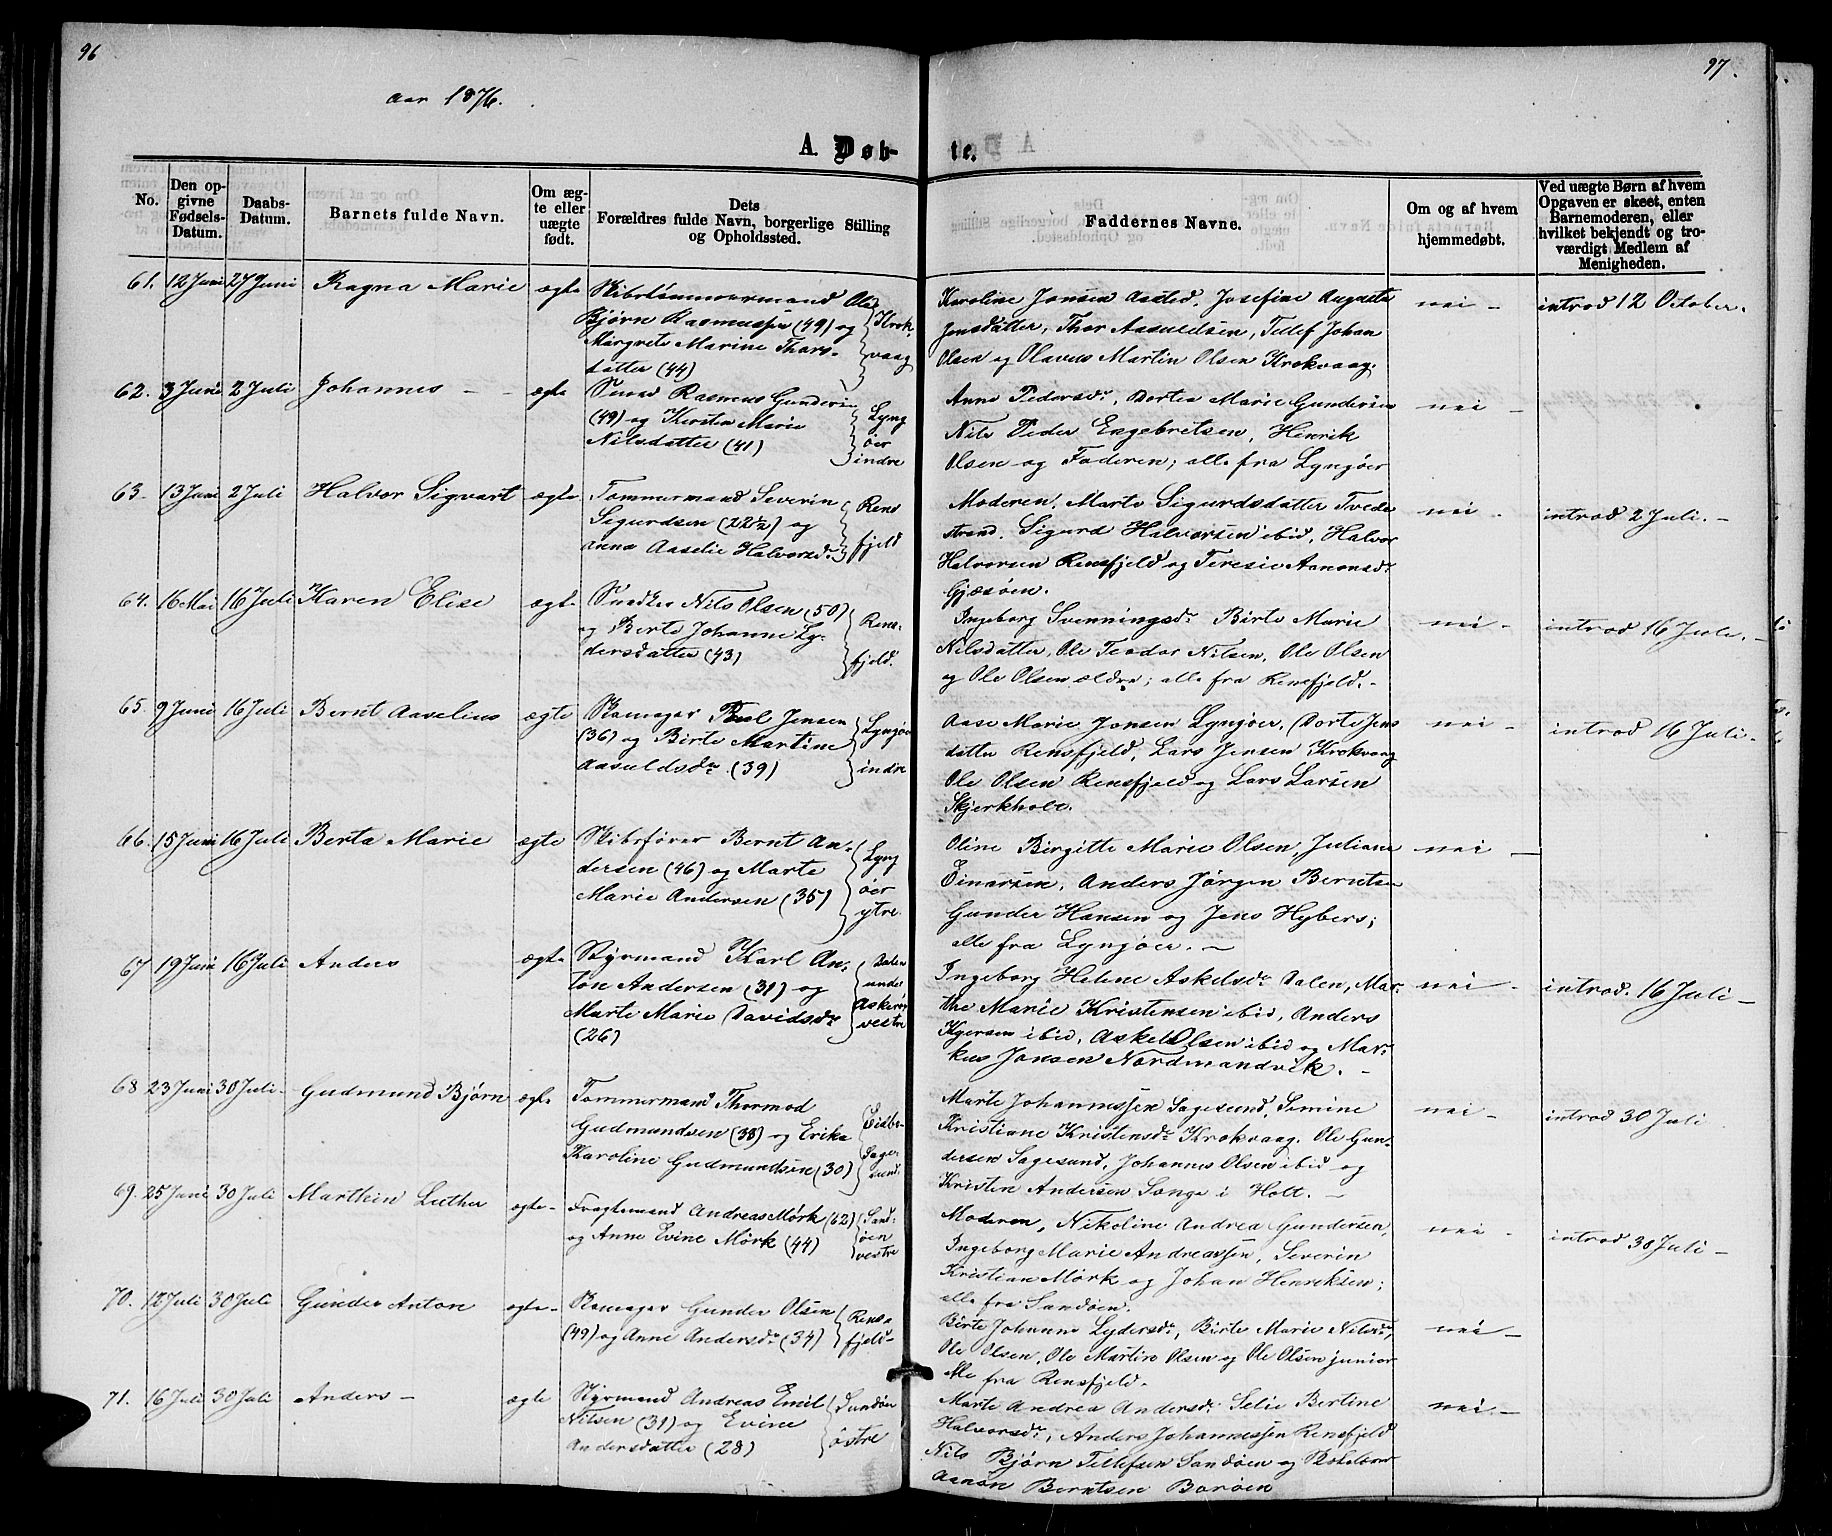 96
97.
Aar 1876.
A. Døb-
te.
No.
Den op-
givne
Fødsels-
Datum.
Daabs-
Datum.
Barnets fulde Navn.
Om æg-
te eller
uægte
født.
Dets
Forældres fulde Navn, borgerlige Stilling
og Opholdssted.
Faddernes Navne.
Om og af hvem
hjemmedøbt.
Ved uægte Børn af hvem
Opgaven er skeet, enten
Barnemoderen, eller
hvilket bekjendt og tro-
værdigt Medlem af
Menigheden.
61. 12 Juni 27 Juni Ragna Marie ægte
Skibstømmermand Ole
Bjørn Rasmussen (49) og
Margrete Marine Thors-
datter (44)
Krok-
vaag
Karoline Jensen Aasted, Josefine Auguste
Jensdatter, Thor Aasuldsen, Tellef Johan
Olsen og Olaves Martin Olsen Krokvaag.
nei -
introd 12 October.
62. 3 Juni 2 Juli Johannes - ægte
Smed Rasmus Gundersen
(49) og Kirsten Marie
Nilsdatter (41)
Lyng
öer
indre
Anne Pedersdr, Dortea Marie Gundersen
Nils Peder Engebretsen, Henrik
Olsen og Faderen; alle fra Lyngöer
nei -
63. 13 Juni 2 Juli Halvor Sigvart ægte
Tømmermand Severin
Sigurdsen (22½) og
Anna Aaselie Halvorsdr
Rens
fjeld
Moderen, Marte Sigurdsdatter Tvede
strand, Sigurd Halvorsen ibid, Halvor
Halvorsen Rensfjeld og Teresie Aanonsdr
Gjæsöen.
nei -
introd 2 Juli. -
64. 16 Mai 16 Juli Karen Elise ægte
Snedker Nils Olsen (50)
og Berte Johanne Ly-
dersdatter (43)
Rens-
fjeld.
Ingeborg Svenningsdr Birte Marie
Nilsdatter, Ole Teodor Nilsen, Ole Olsen
og Ole Olsen ældre; alle fra Rensfjeld. -
nei -
introd 16 Juli. -
65. 9 Juni 16 Juli Bernt Aavelius ægte
Skomager Poul Jensen
(36) og Birte Martine
Aasuldsdr. (39)
Lyngöer
indre
Aase Marie Jensen Lyngöer, Dorte Jens
datter Rensfjeld, Lars Jensen Krokvaag
Ole Olsen Rensfjeld og Lars Larsen
Skjerkholt.
nei -
introd 16 Juli -
66. 15 Juni 16 Juli Berta Marie ægte
Skibsfører Bernt An-
dersen (46) og Marte
Marie Andersen (35)
Lyng
öer
ytre
Oline Birgitte Marie Olsen, Juliane
Einarsen, Anders Jørgen Berntsen
Gunder Hansen og Jens Hybers;
alle fra Lyngöer. -
nei -
67 19 Juni 16 Juli Anders ægte
Styrmand Karl An-
ton Andersen (31) og
Marte Marie Davidsdr
(26)
Dalen
under
Askerö
vestre
Ingeborg Helene Askelsdr Dalen, Mar-
the Marie Kristensen ibid, Anders
Kjersen ibid, Askel Olsen ibid og Mar-
kus Jensen Nordmandvik. -
nei -
introd. 16 Juli -
68 23 Juni 30 Juli - Gudmund Bjørn ægte
Tømmermand Thormod
Gudmundsen (38) og Erika
Karoline Gudmundsen (30)
Sage-
sund.
Marte Johannessen Sagesund, Semine
Kristiane Kristensdr Krokvaag. Ole Gun-
dersen Sagesund, Johannes Olsen ibid og
Kristen Andersen Songe i Holt. -
nei -
introd 30 Juli
69. 25 Juni 30 Juli Marthin Luther ægte -
Fragtemand Andreas Mørk (62)
og Anne Evine Mørk (44)
Sand-
öen
vestre
Moderen, Nikoline Andrea Gundersen,
Ingeborg Marie Andreassen, Severin
Kristian Mørk og Johan Henriksen;
alle fra Sandöen.
nei -
introd 30 Juli -
70. 12 Juli 30 Juli Gunder Anton ægte -
Skomager Gunder Olsen
(49) og Anne Andersdr (34)
Rens-
fjeld -
Birte Johanne Lydersdr, Birte Marie Nilsdr,
Ole Olsen, Ole Martin Olsen og Ole Olsen junior
Alle fra Rensfjeld.
nei -
71. 16 Juli 30 Juli Anders - ægte
Styrmand Andreas Emil
Nilsen (31) og Evine
Andersdatter (28)
Sandöen
östre
Marte Andrea Andersdr Selie Bertine
Halvorsdr, Anders Johannessen Rensfjeld
Nils Bjørn Tellefsen Sandöen og
Aanon Berntsen Boröen
nei. -